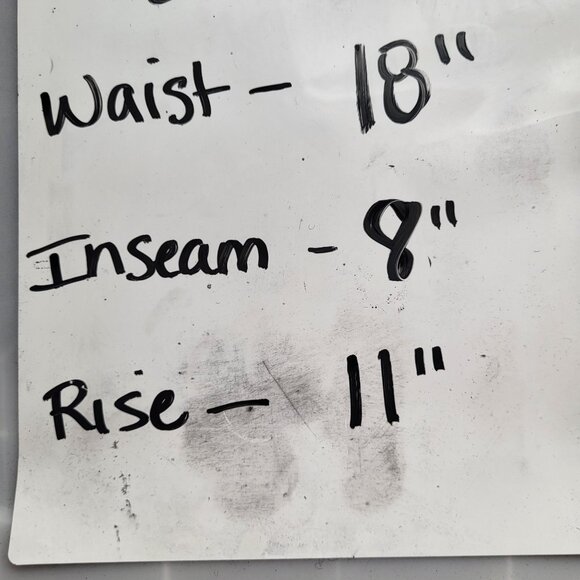 Waist - 18"
Inseam - 8"
Rise - 11"